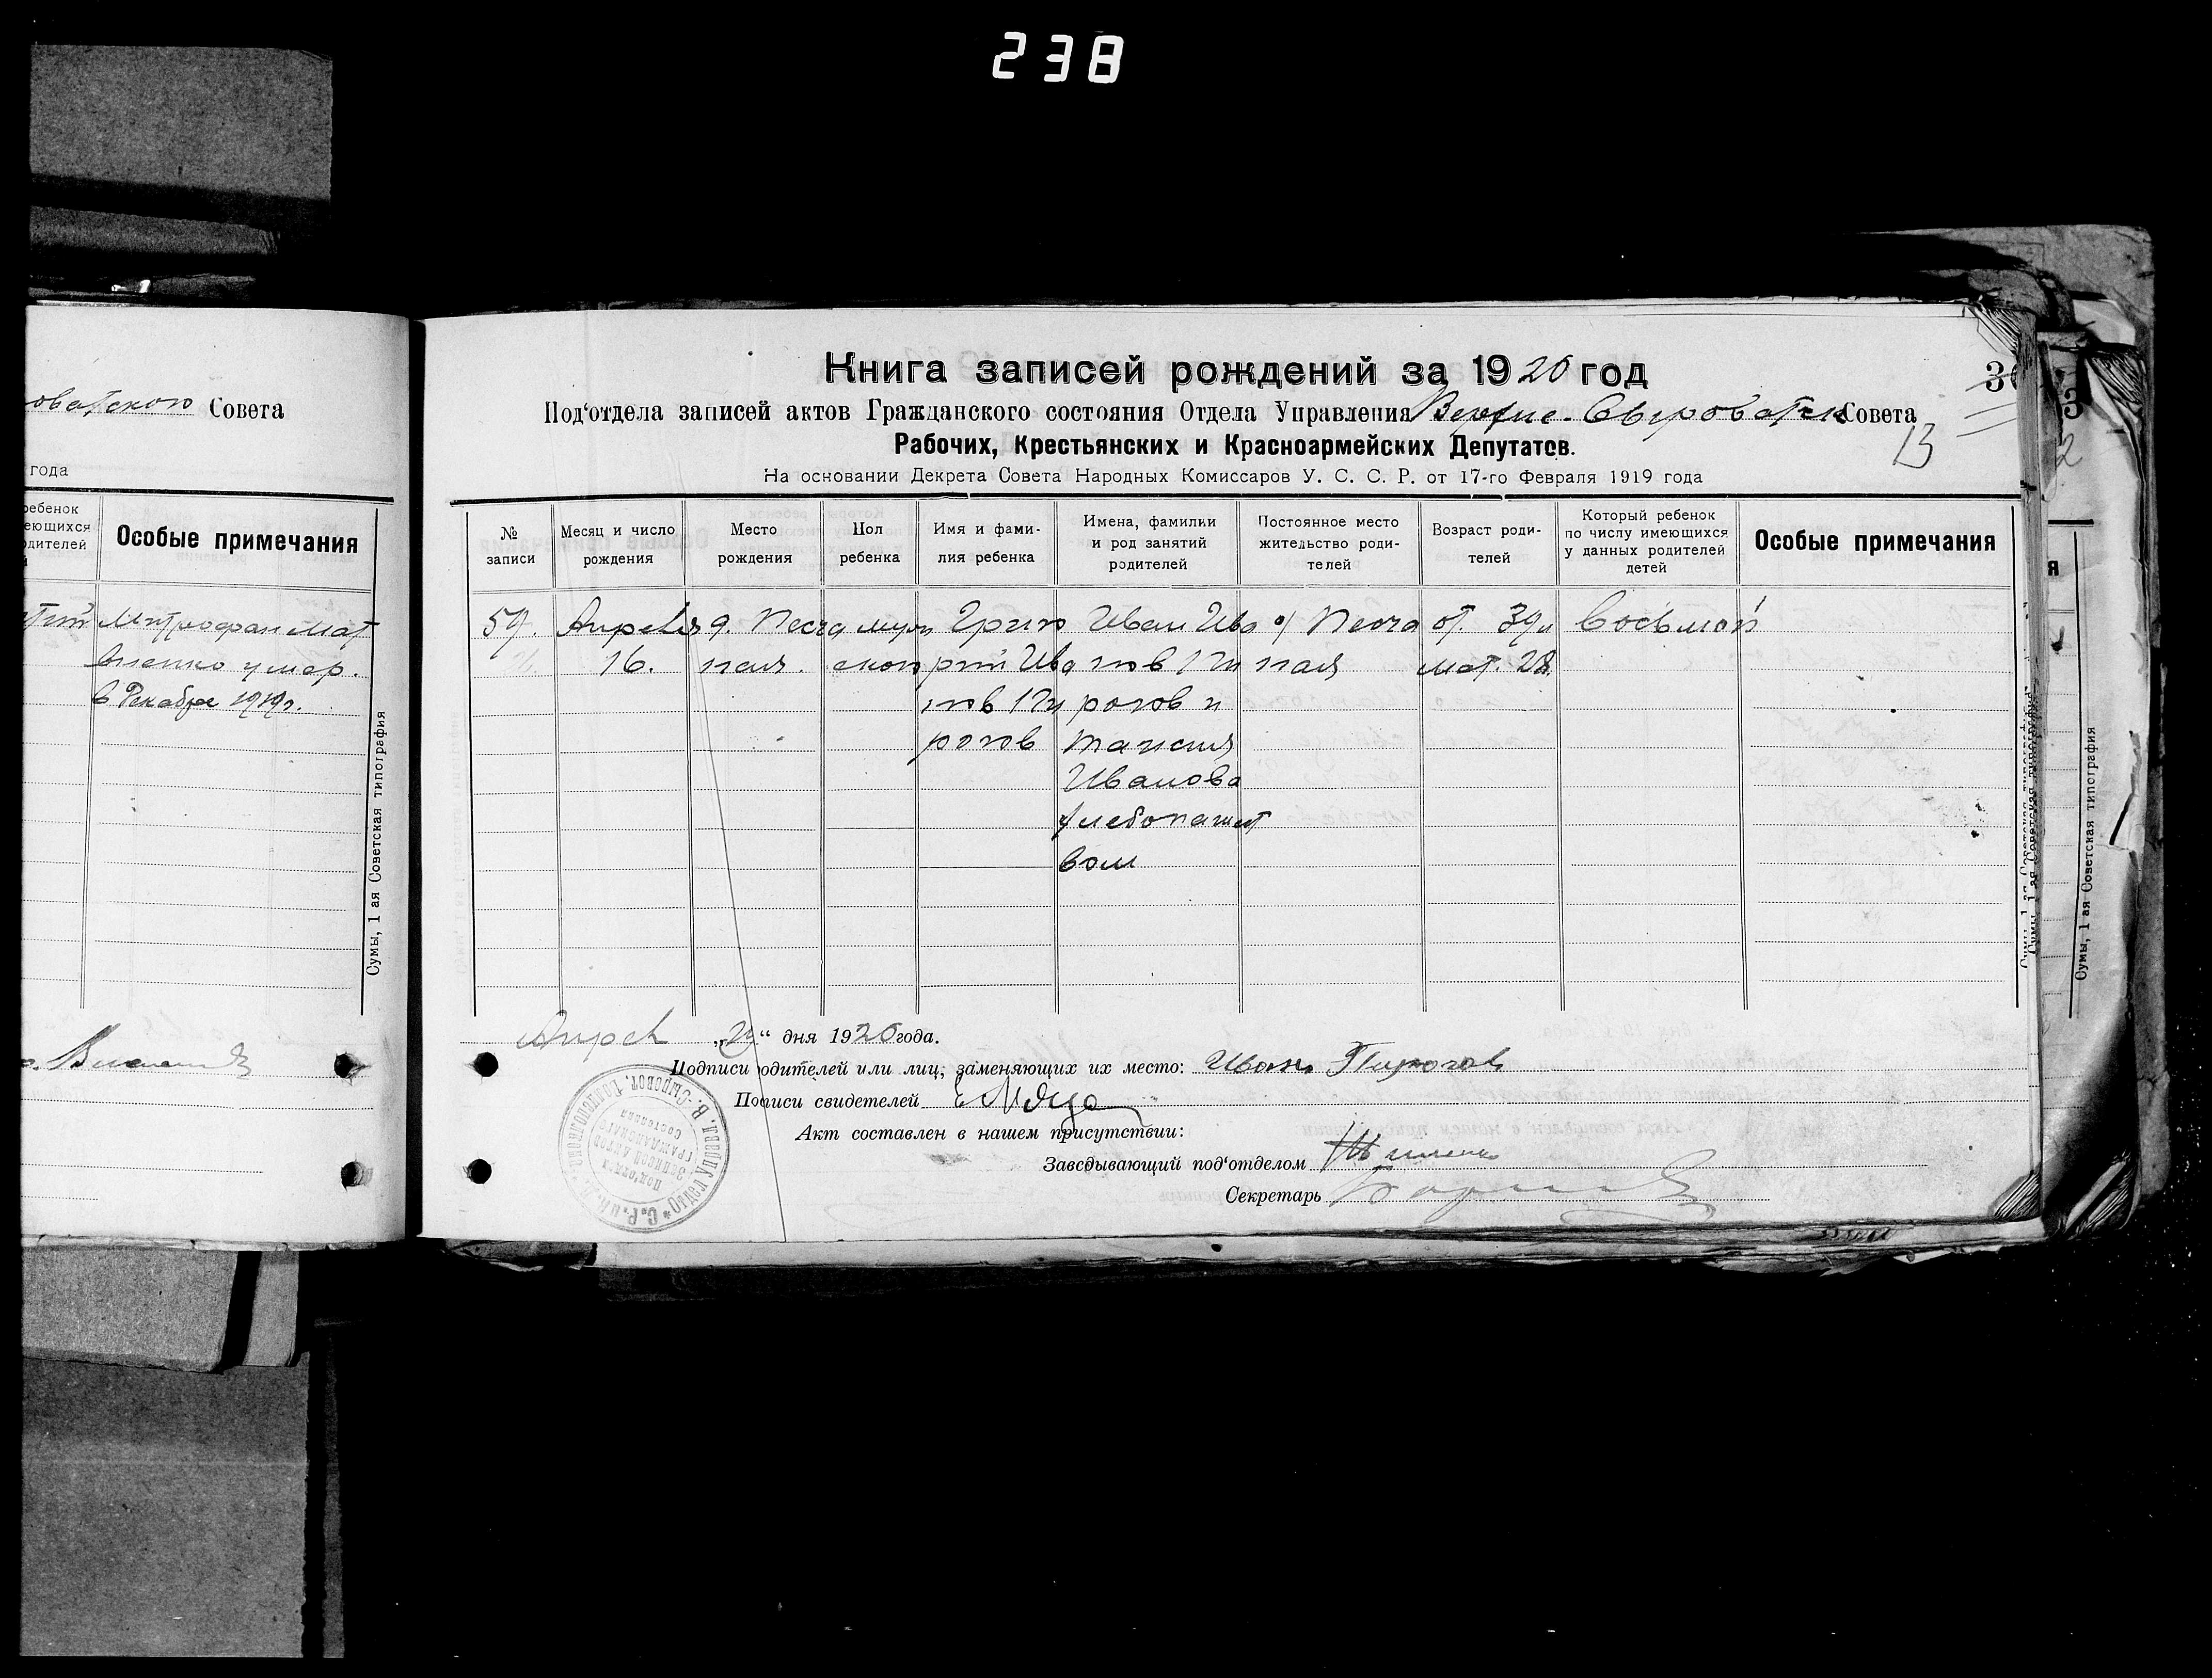 238
оватского Совета
года
ребенок
еющихся
одителей
Особые примечания
Митрофан Мат
вненко умер.
в Декабре 1919г.
Сумы, 1 ая Советская типография
Книга записей рождений за 1920 год
Под‘отдела записей актов Гражданского состояния Отдела Управления Верхне-Сыроватск Совета
13
Рабочих, Крестьянских и Красноармейских Депутатов.
На основании Декрета Совета Народных Комиссаров У. С. С. Р. от 17-го Февраля 1919 года
№ записи
Месяц и число рождения
Место рождения
Пол ребенка
Имя и фами-
лия ребенка
Имена, фамилии
и род занятий
родителей
Постоянное место
жительство роди-
телей
Возраст роди-
телей
Который ребенок
по числу имеющихся
у данных родителей
детей
Особые примечания
Апреля
16.
Песча
ная.
муж
ской
Григо
рий Ива
нов Пи
рогов
Иван Ива
нов Пи
рогов и
Таисия
Иванова
хлебопашест
вом
Песча
ная
от. 39 и
мат. 28.
Восьмой
Апрел „ “ дня 1920 года.
Подписи родителей или лиц, заменяющих их место: Иван Пирогов
Подписи свидетелей
Акт составлен в нашем присутствии:
Заведывающий под‘отделом
Секретарь
Сумы, 1 ая Советская типография